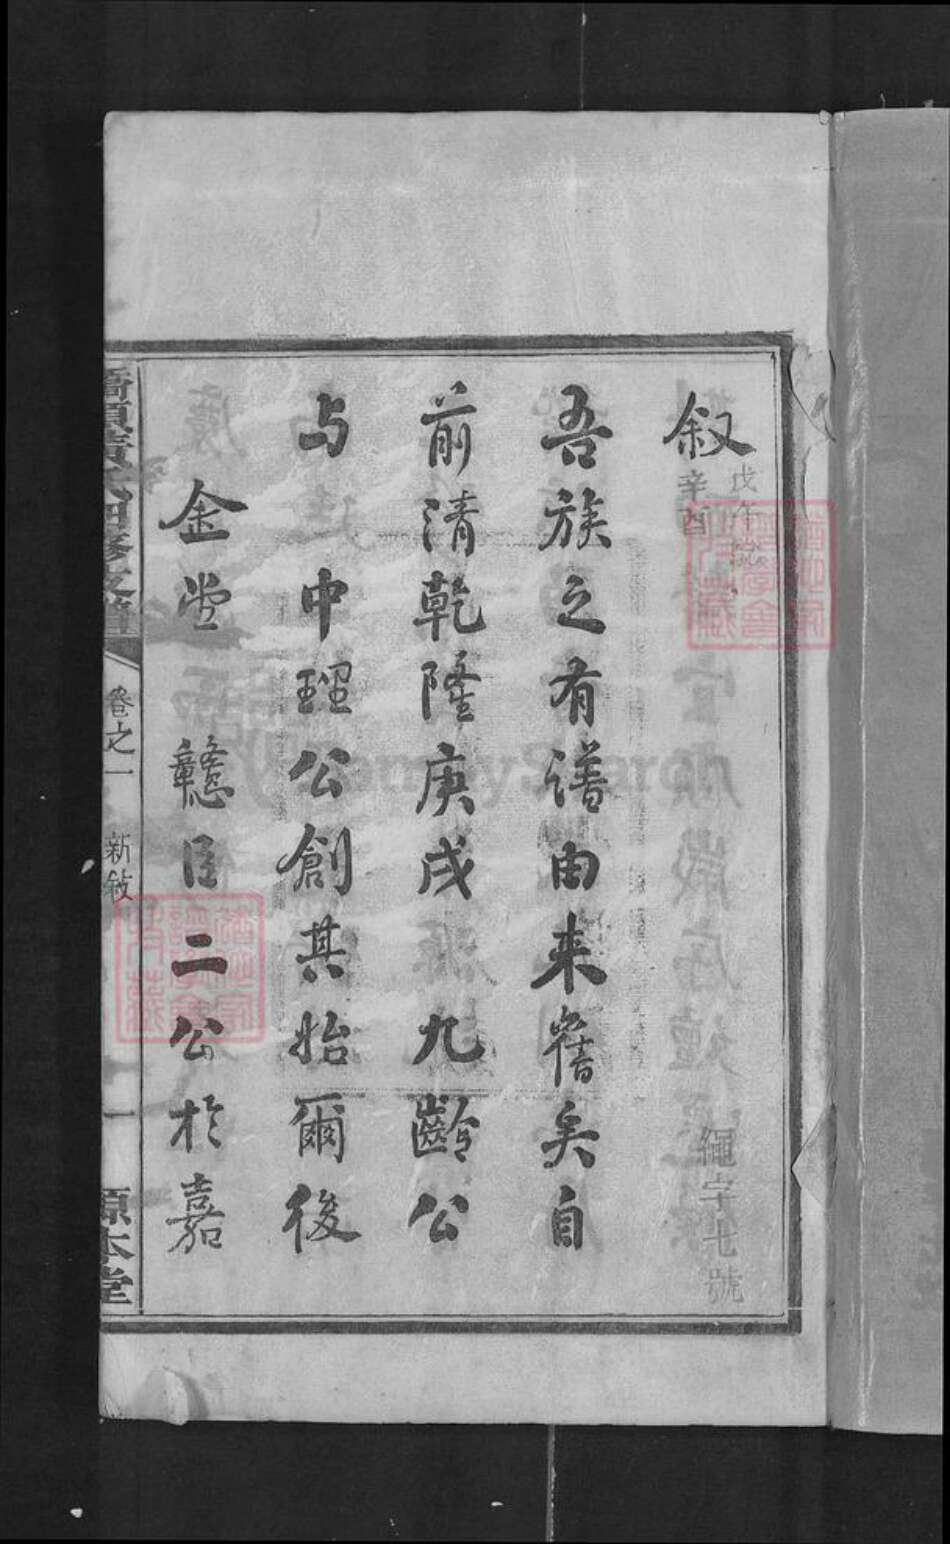 叙
吾族之有谱由来舊矣自
前清乾隆庚戌九齡公
与中理公創其始爾後
金堂戇臣二公於嘉
戊午
辛酉
繩字七號
四修支譜
卷之一
新敍
一
源本堂